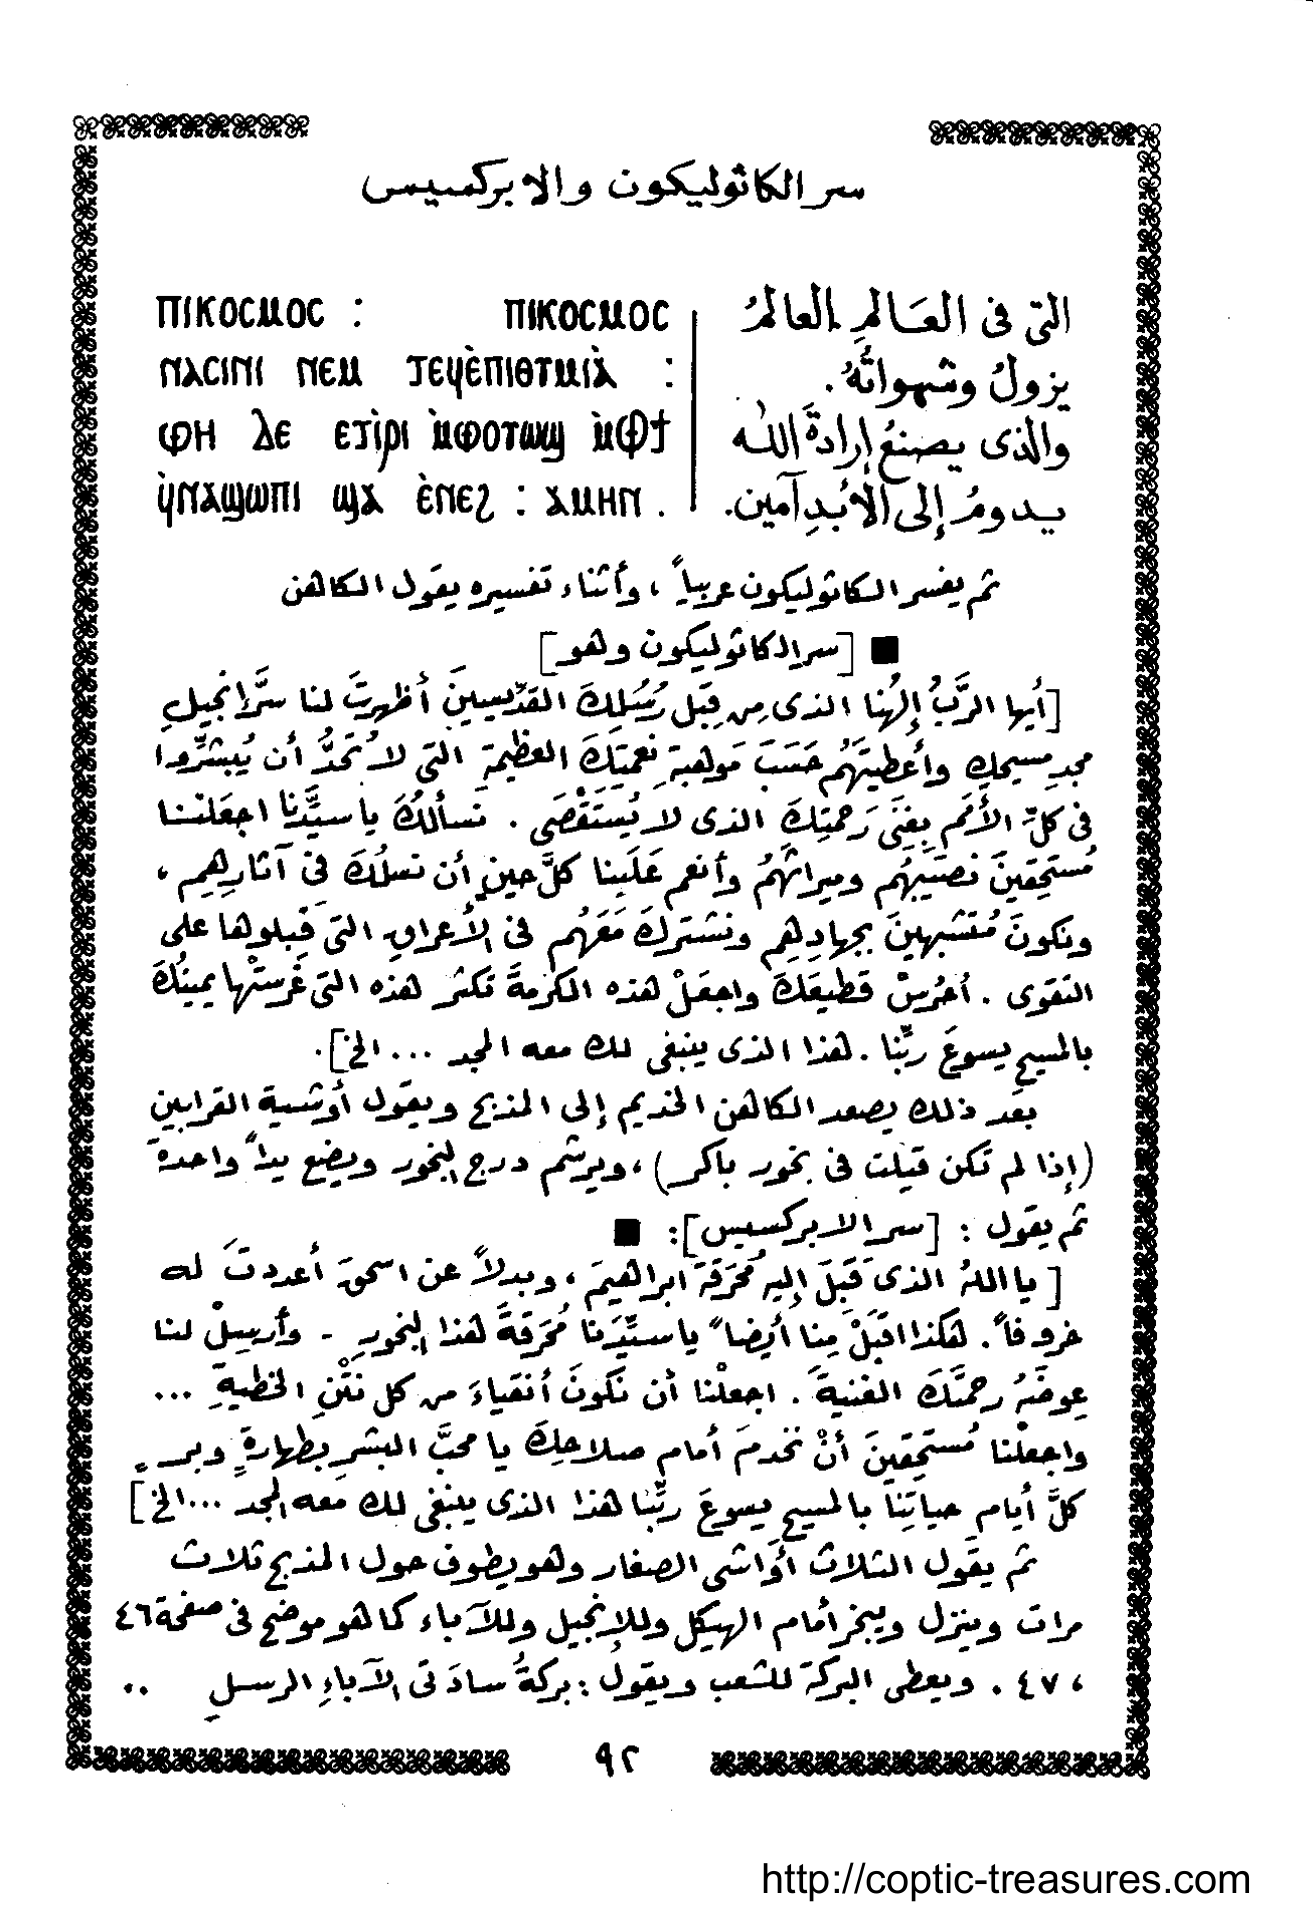 سر الكاثوليكون والابركسيس
ⲡⲓⲕⲟⲥⲙⲟⲥ : ⲡⲓⲕⲟⲥⲙⲟⲥ
ⲛⲁⲥⲓⲛⲓ ⲛⲉⲙ ⲧⲉϥⲉ̀ⲡⲓⲑⲩⲙⲓⲁ̀ :
ⲫⲏ ⲇⲉ ⲉⲧⲓ̀ⲣⲓ ⲙ̀ⲫⲟⲩⲱϣ ⲙ̀ⲫϯ
ϥ̀ⲛⲁϣⲱⲡⲓ ϣⲁ ⲉ̀ⲛⲉϩ : ⲁⲙⲏⲛ .
التى فى العَالمِ. العالمُ
يزولُ وشهواتُهُ.
والذى يصنعُ إرادةَ اللّٰه
يدومُ إلى الأبدِ آمين.
ثم يفسر الكاثوليكون عربياً ، وأثناء تفسيره يقول الكاهن
■ [سر الكاثوليكون وهو]
[أيها الرَّبُ إلهُنا الذى مِن قِبَل رُسُلِكَ القدِّيسينَ أظهرتَ لنا سرَّ إنجيلِ
مجدِ مسيحكِ وأعطيتَهُم حَسَبَ مَوهبةِ نعمتِكَ العظيمةِ التى لا تُحَدُّ أن يُبشِّروا
فى كلِّ الأمَم بِغِنَى رَحمتِكَ الذى لا يُستَقصَى . نسألكُ يا سيِّدَنا اجعَلنا
مُستَحِقينَ نصيبَهُم وميراثَهُمُ وأنعم عَلَينا كلَّ حينٍ أن نسلُكَ فى آثارِهِم ،
ونكونَ مُتَشبهينَ بجهادِهِم ونشتركَ مَعَهُم فى الأعراقِ التى قَبلوها على
التقوى . أحرُسْ قطيعَكَ واجعَلْ هذه الكرمةَ تكثر هذه التى غَرستْها يمينُكَ
بالمسيحِ يسوعَ ربِّنا . هذا الذى ينبغى لك معه المجد ... الخ].
بعد ذلك يصعد الكاهن الخديم إلى المذبح ويقول أوشية القرابين
(إذا لم تكن قيلت فى بخور باكر) ، ويرشم درج البخور ويضع يداً واحدة
ثم يقول : [سر الابركسيس]: ■
[يا اللهُ الذى قَبِلَ إليهِ مُحرَقةَ ابراهيمَ ، وبدلاً عن اسحقَ أعددتَ له
خروفاً. هكذا اقبَلْ مِنا أيضاً يا سيِّدَنا مُحرَقةَ هذا البخورِ - وأرسِلْ لنا
عِوضَهُ رحمتَكَ الغنيةَ . اجعلْنا أن نكونَ أنقياءَ من كل نتْنِ الخطيةِ ...
واجعلْنا مُستَحِقينَ أنْ نخدمَ أمام صلاحِكَ يا محبَّ البشرِ بطهارةٍ وبرٍ
كلَّ أيام حياتِنا بالمسيحِ يسوعَ ربِّنا هذا الذى ينبغى لك معه المجد ...الخ]
ثم يقول الثلاث أواشى الصغار وهو يطوف حول المذبح ثلاث
مرات وينزل ويبخر أمام الهيكل وللإنجيل وللآباء كما هو موضح فى صفحة ٤٦
، ٤٧ . ويعطى البركة للشعب ويقول : بركةُ سادَتى الآباءِ الرسلِ ..
٩٢
http://coptic-treasures.com